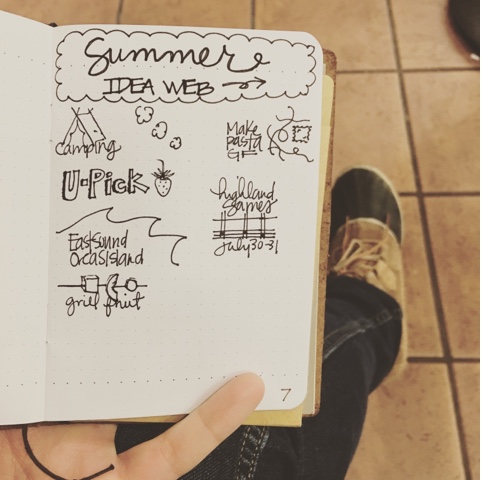 Summer
IDEA WEB
camping
U-Pick
Eastsound
Orcas Island
grill fruit
Make
pasta
GF
highland
games
July 30-31
7